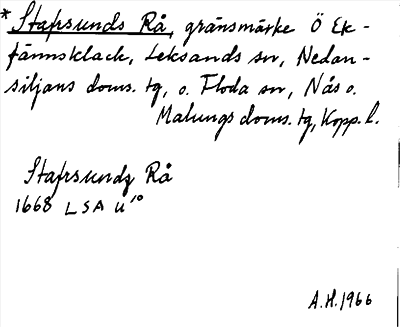 * Stafrsunds Rå, gränsmärke Ö Ek-
fännsklack, Leksands sn, Nedan-
siljans doms. tg, o. Floda sn, Nås o.
Malungs doms. tg, Kopp. l.
Stafrsundz Rå
1668 LSA U¹⁰
A.H. 1966